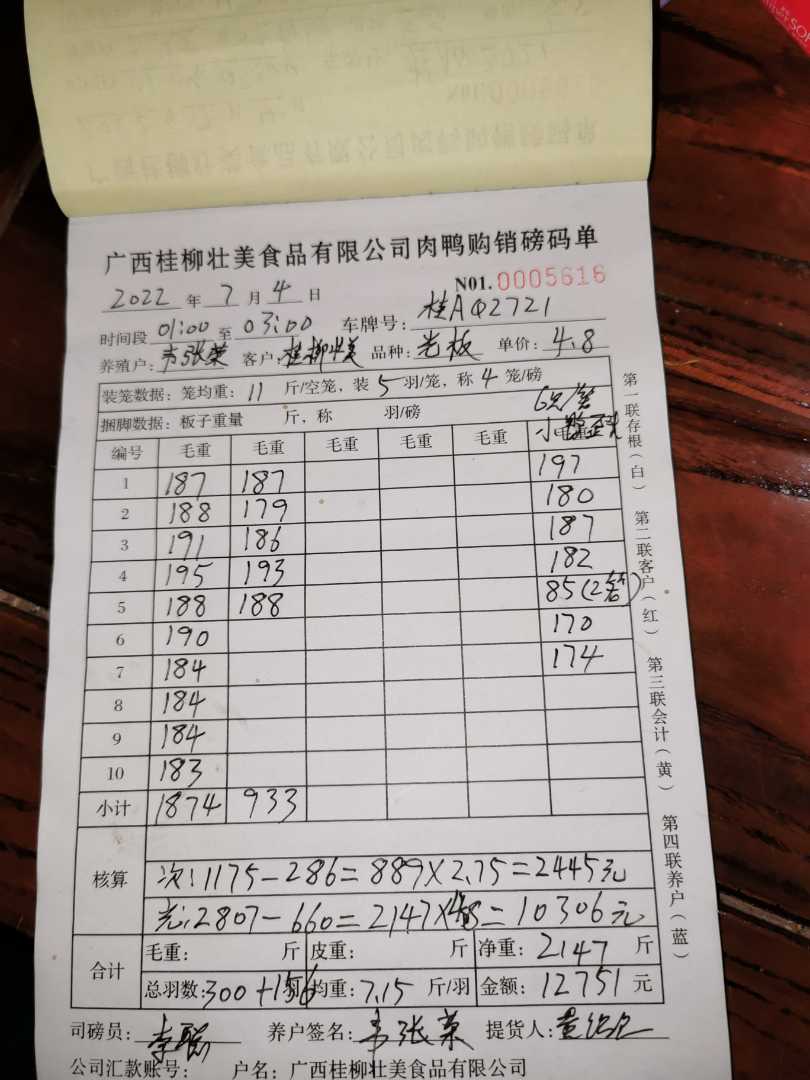 广西桂柳壮美食品有限公司肉鸭购销磅码单
2022 年 7 月 4 日 N01.0005616
时间段 01:00 至 03:00 车牌号: 桂AQ2721
养殖户: 韦张荣 客户: 桂柳壮美 品种: 光板 单价: 4.8
装笼数据: 笼均重: 11 斤/空笼, 装 5 羽/笼, 称 4 笼/磅
捆脚数据: 板子重量 斤, 称 羽/磅 6只/笼
编号 毛重 毛重 毛重 毛重 毛重 小
1 187 187 197
2 188 179 180
3 191 186 187
4 195 193 182
5 188 188 85(2笼)
6 190 170
7 184 174
8 184
9 184
10 183
小计 1874 933
核算
次:1175-286=889×2.75=2445元
光:2807-660=2147×4.8=10306元
合计
毛重: 斤 皮重: 斤 净重: 2147 斤
总羽数: 300+156 羽 均重: 7.15 斤/羽 金额: 12751 元
司磅员: 李聪 养户签名: 韦张荣 提货人:
公司汇款账号: 户名: 广西桂柳壮美食品有限公司
第一联存根(白) 第二联客户(红) 第三联会计(黄) 第四联养户(蓝)